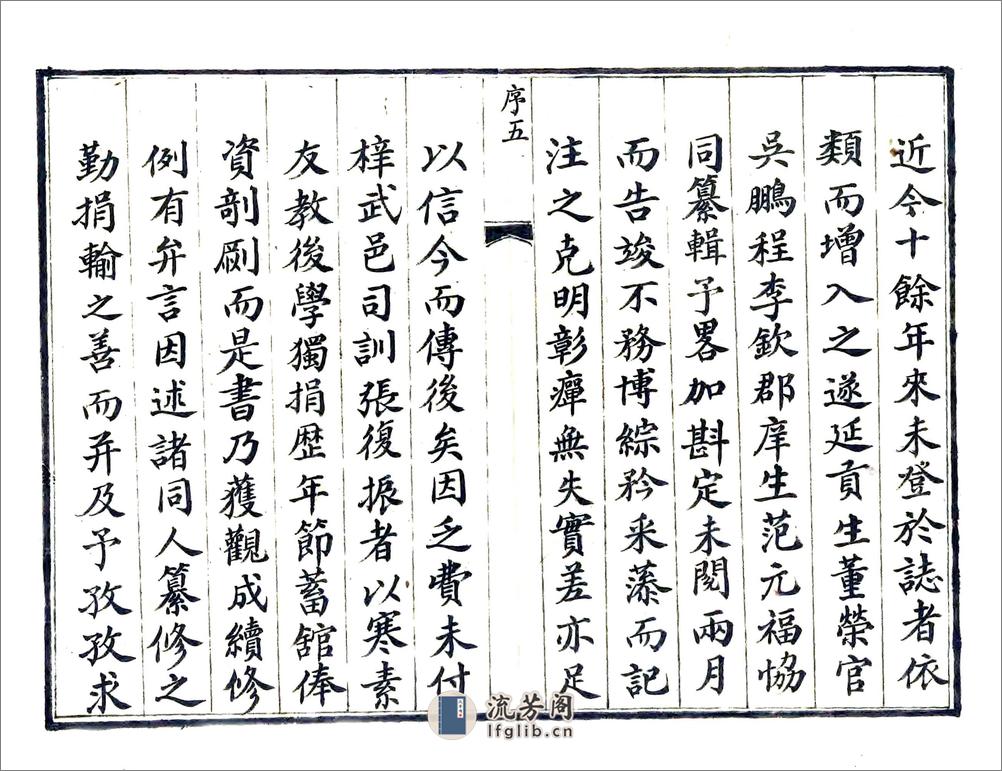 近今十餘年來未登於誌者依
類而增入之遂延貢生董榮官
吳鵬程李欽郡庠生范元福恊
同纂輯予畧加斟定未閱兩月
而告竣不務博綜矜采藻而記
注之克明彰癉無失實差亦足
序五
以信今而傳後矣因乏費未付
梓武邑司訓張復振者以寒素
友教後學獨捐歷年節蓄舘俸
資剞劂而是書乃獲觀成續修
例有弁言因述諸同人纂修之
勤捐輸之善而并及予孜孜求
流芳阁
lfglib.cn